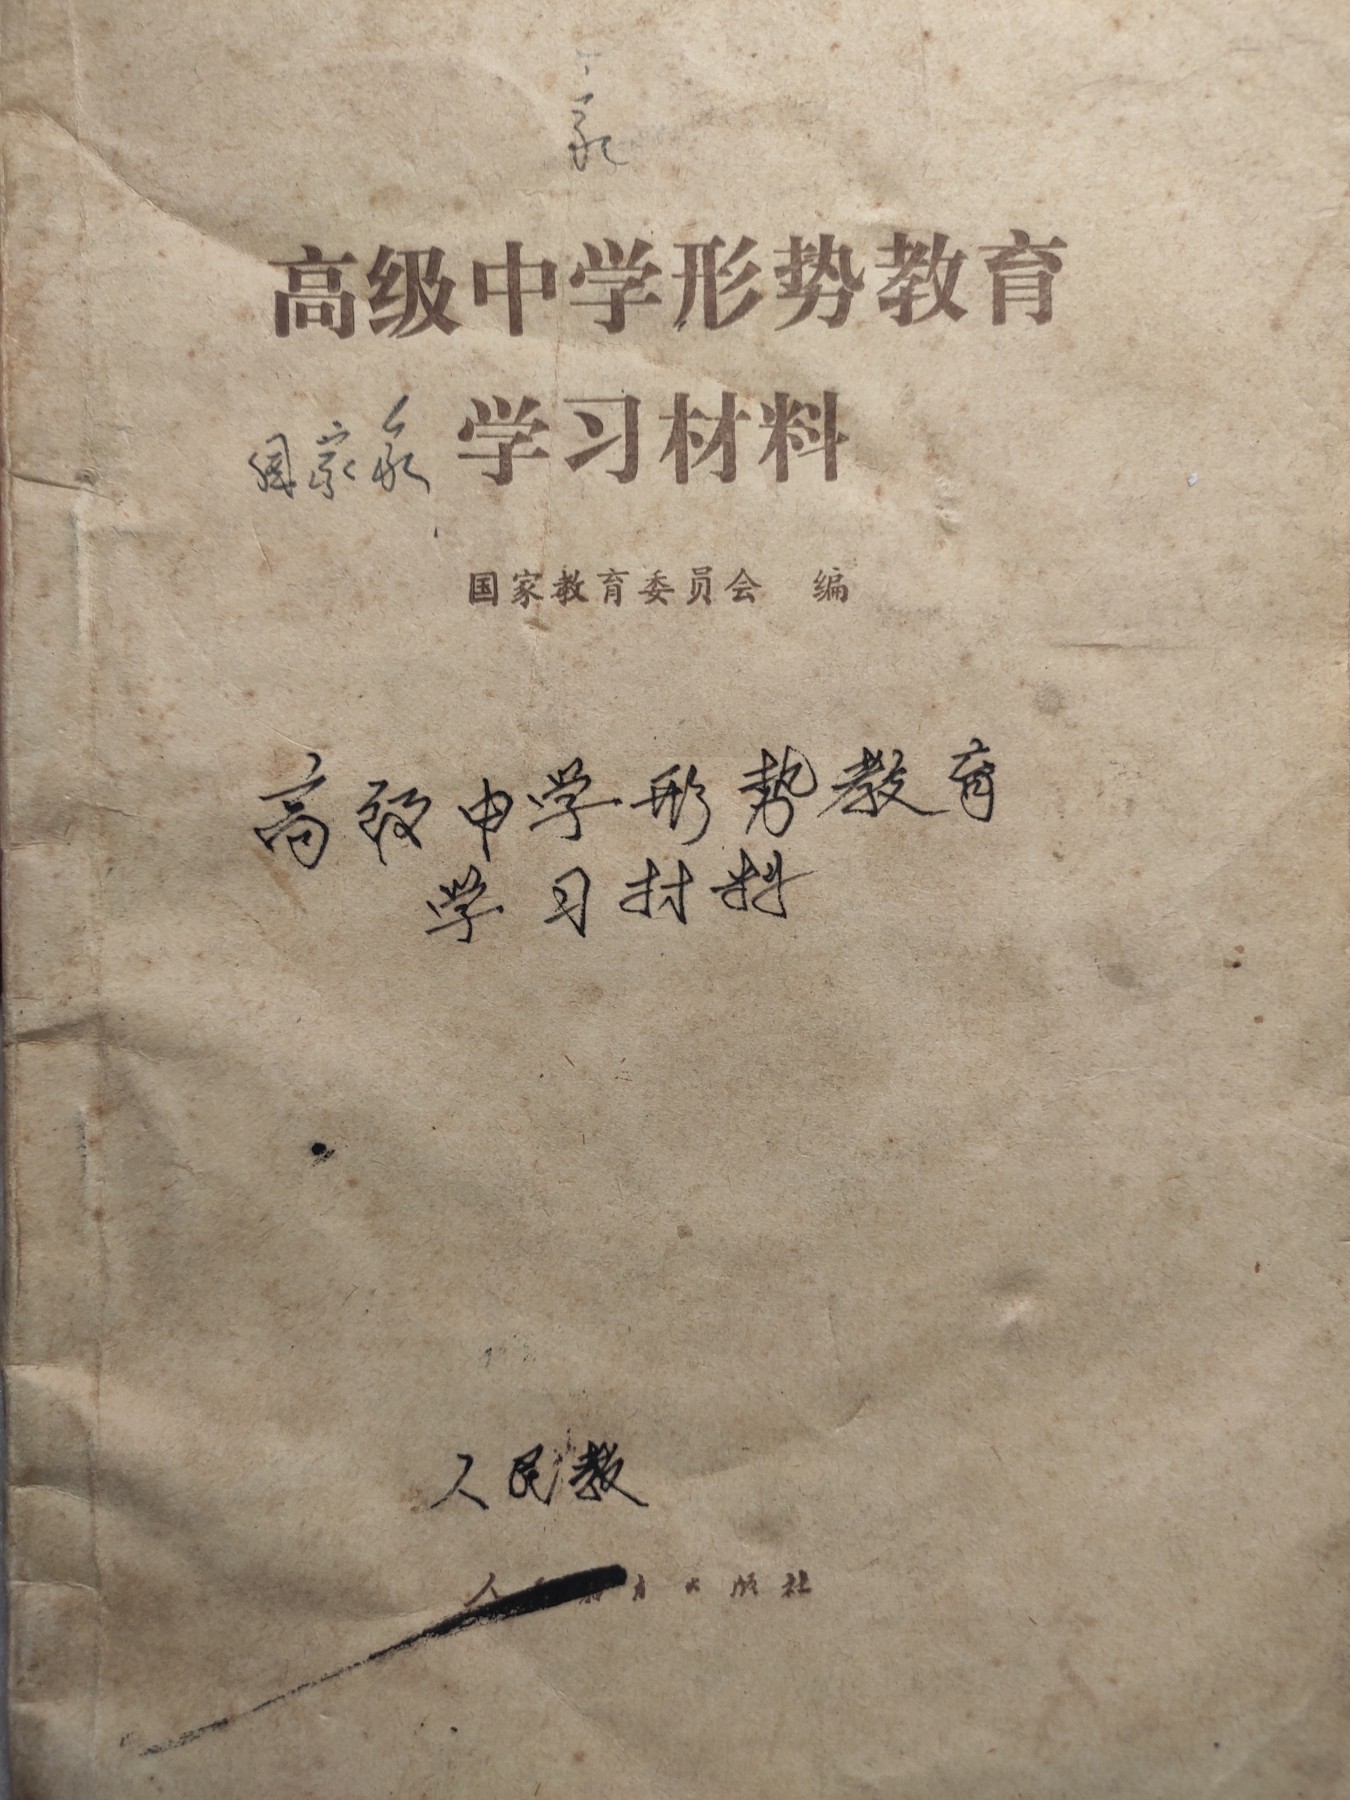 高级中学形势教育
学习材料
国家教育委员会 编
高级中学形势教育
学习材料
人民教
人民教育出版社